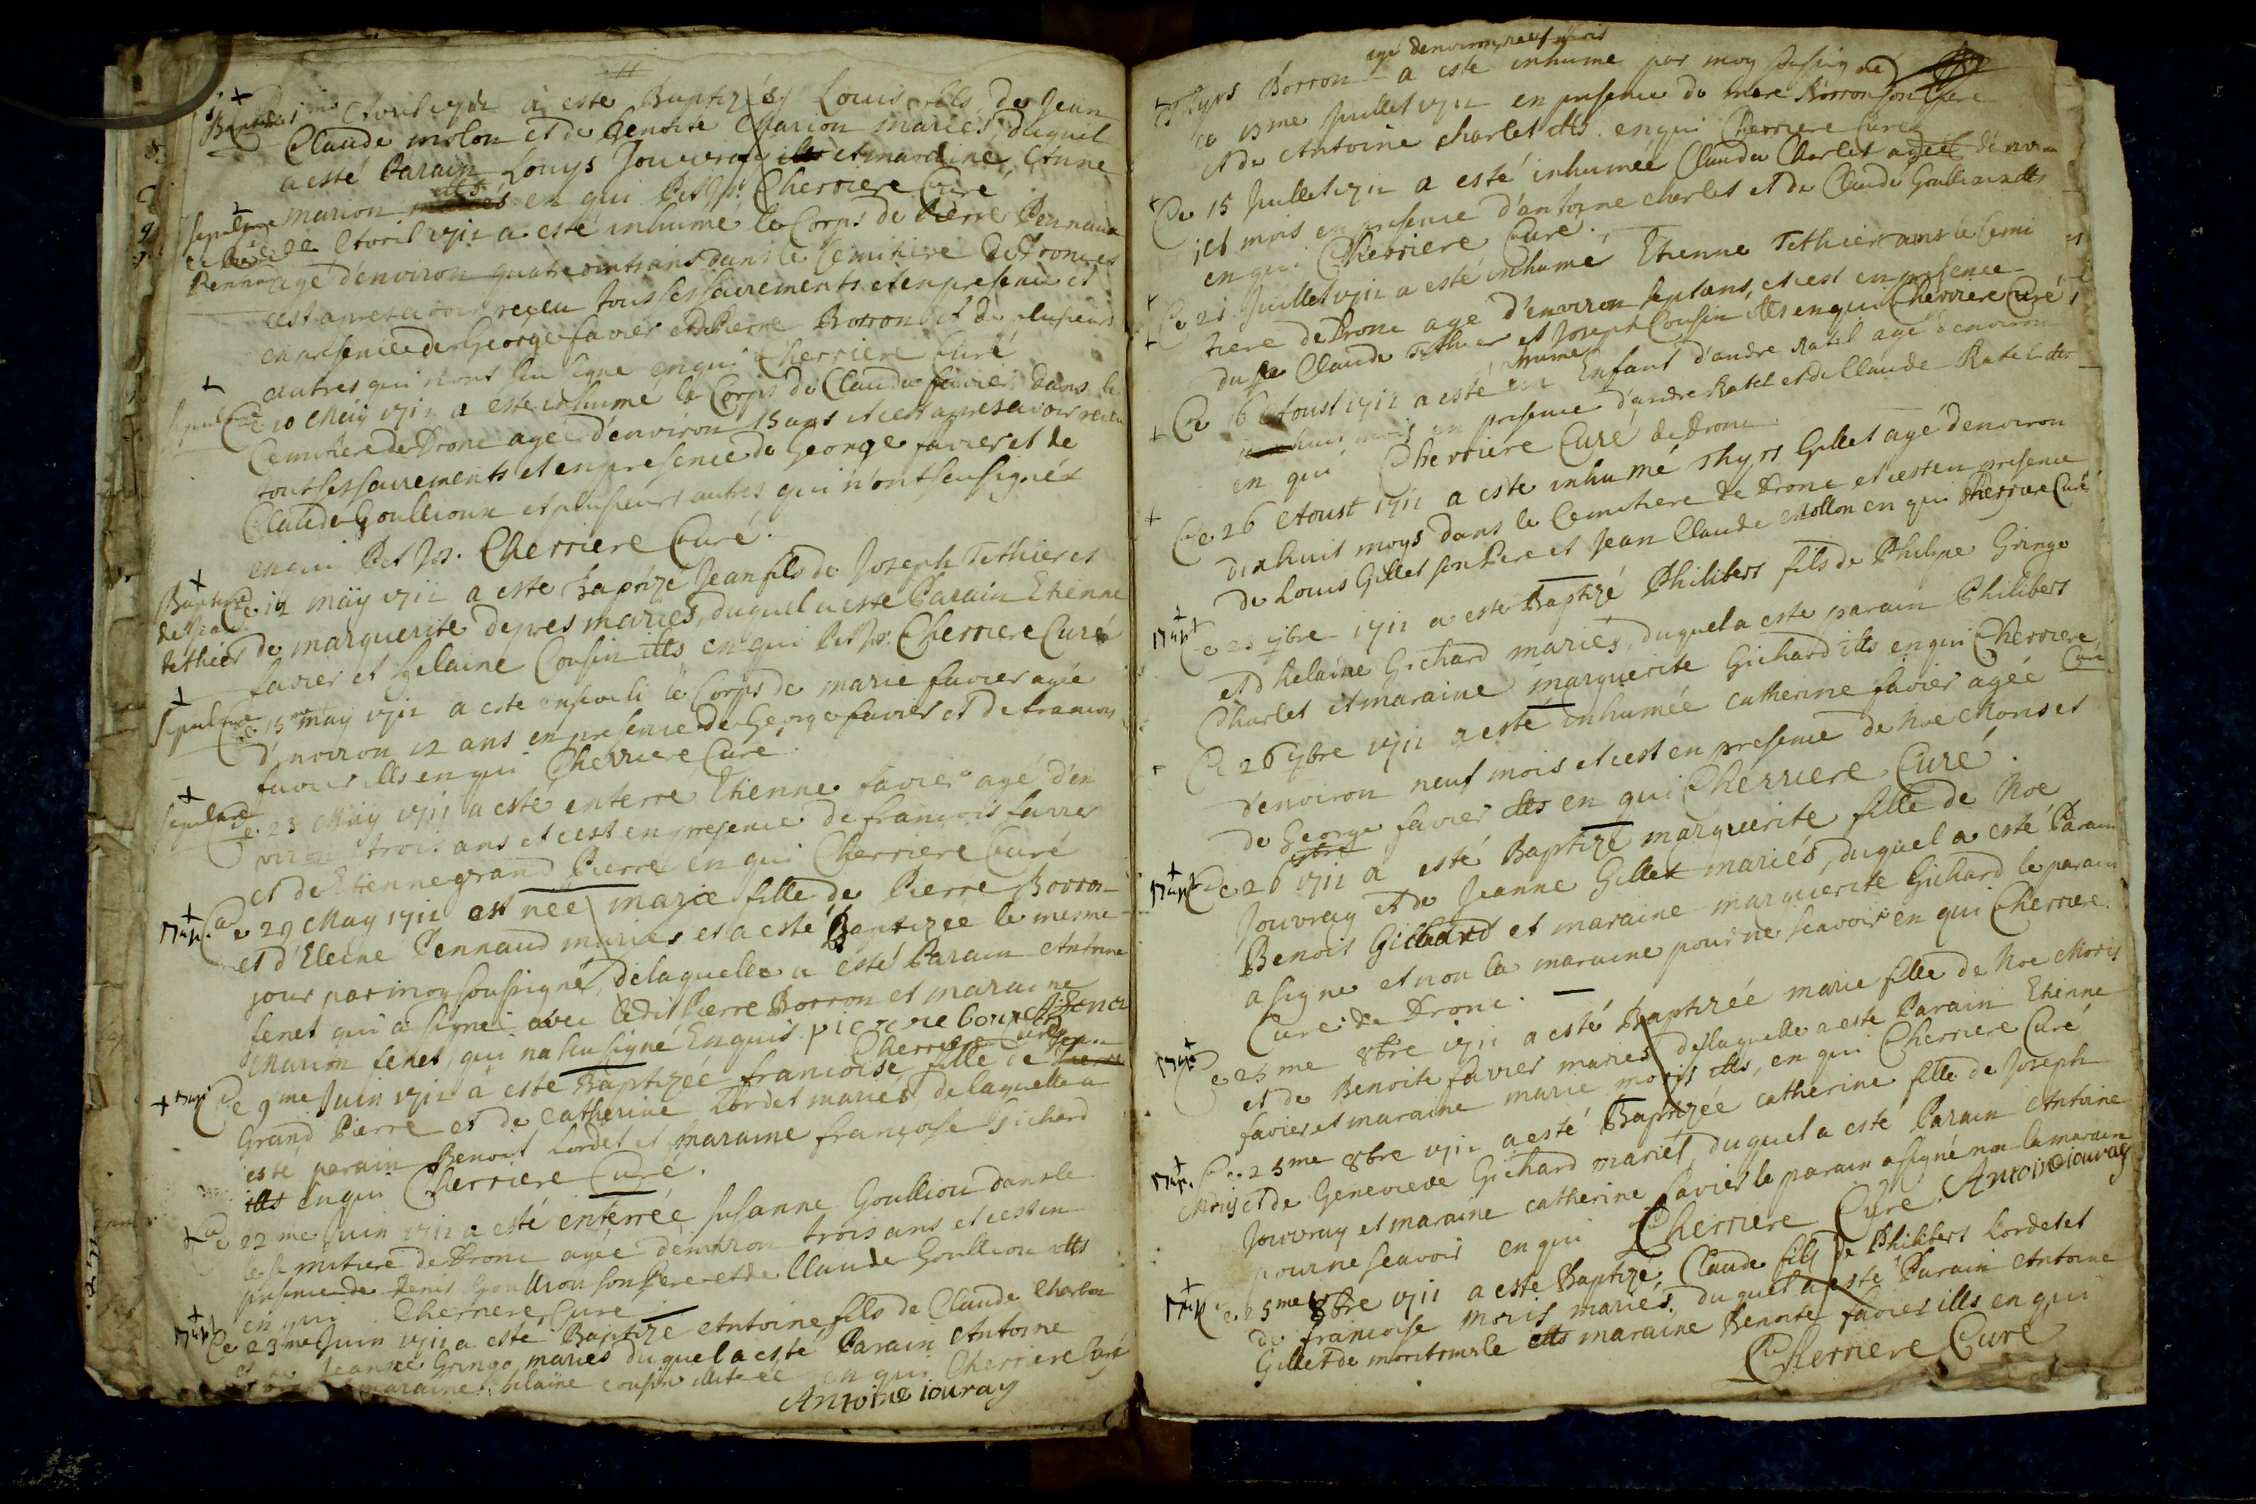 a esté Baptizé Louis fils de Jean
Claude molon et de Benoite Marion mariés, duquel
a esté Parain Louys Jouvray et maraine Anne
marion ills en qui Cherriere Curé
Sepulture Avril 1712 a esté inhumé le Corps de Pierre Pennaud
Pennaud agé d'environ quatre vints ans dans le Cemitiere de Drone et
cest apres avoir reçeu tous ses sacrements et en presence et
en presence de George favier et Pierre Borron et de plusieurs
autres qui n'ont sçu signe enqui Cherriere Curé
Sepulture Ce 10 May 1712 a esté inhumé le Corps de Claude favier dans le
Cemitiere de Drone agé d'environ 15 ans et cest apres avoir reçeu
tous ses sacrements et en presence de George favier et de
Claude Goullioux et plusieurs autres qui n'ont sçu signéx
enqui Cherriere Curé.
Baptize Ce 12 may 1712 a este Baptize Jean fils de Joseph Tethier et
tethier de marguerite depres mariés, duquel a esté Parain Etienne
favier et helaine Cousin ills en qui Cherriere Curé
Sepulture Ce 15me may 1712 a esté enseveli le Corps de marie favier agée
d'environ 12 ans en presence de George favier et de francois
favier ills en qui Cherriere Curé.
Sepulture Ce 23 May 1712 a esté enterré Etienne favier agé d'en
viron trois ans et cest en presence de françois favier
et de Etienne grand Pierre en qui Cherriere Curé
Bapt. Ce 29 May 1712 est née marie fille de Pierre Borron
et d'Eleine Pennaud mariés et a esté Baptizée le mesme
jour par moy soussigné, de laquelle a esté Parain Antoine
fenet qui a signé avec ledit Pierre Borron et maraine
Marion fenet, qui na sçu signé Enquis
Cherriere curé
Bapt Ce 9me Juin 1712 a esté Baptizée francoise fille de
Grand Pierre et de Catherine Lordet mariés de laquelle a
esté parain Benoit Lordet et maraine françoise Gichard
ills en qui Cherriere Curé.
Ce 22me Juin 1712 a esté enterrée susanne Goulliou dans le
Cemitiere de Drone agée d'environ trois ans et cest en
presence de Denis Goulliou son Pere et de Claude Goulliou ills
en qui Cherriere Curé
Bapt Ce 23me Juin 1712 a esté Baptizé Antoine fils de Claude Charlon
et de Jeanne Gringe mariés duquel a esté Parain Antoine
maraine helaine cousin en qui Cherriere Curé
Antoine iouray
agé denviron neuf mois
Thyrs Borron a esté inhumé par moy soussigné
ce 13me Juillet 1712 en presence de Borron son Pere
et de Antoine charlet ills enqui Cherriere Curé
Ce 15 Juillet 1712 a esté inhumée Claude Charlet agée d'environ
mois en presence d'antoine charlet et de Claude Goullioux ills
en qui Cherriere Curé.
Ce 21 Juillet 1712 a esté inhumé Etienne Tethier dans le Cemi
tiere de Drone agé d'environ sept ans, et cest en presence
Claude Tethier et Joseph Cousin ills en qui Cherriere Curé,
Ce 16 Aoust 1712 a esté inhumé un Enfant d'andre Ratel agé d'environ
huit mois en presence d'andre Ratel et de Claude Ratel ills
en qui Cherriere Curé de Drone
Ce 26 Aoust 1712 a esté inhumé Thyrs Gillet agé d'environ
dixhuit moys dans le Cemitiere de Drone et cest en presence
de Louis Gillet son Pere et Jean Claude Mollon en qui Cherriere Curé
Bapt Ce 23 7bre 1712 a esté Baptizé Philibert fils de Philipe Gringe
et d'helaine Gichard mariés, duquel a esté parain Philibert
Charlet et maraine marguerite Gichard ills en qui Cherriere
Curé
Ce 26 7bre 1712 a esté inhumée catherine favier agée
d'environ neuf mois et cest en presence de Noe Moris et
de George favier ills en qui Cherriere Curé.
Bapt Ce 26 7bre 1712 a esté Baptizé marguerite fille de Noe
Jouvray et de Jeanne Gillet mariés, duquel a esté Parain
Benoit Gichard et maraine marguerite Gichard le parain
a signe et non la maraine pour ne scavoir en qui Cherriere
Curé de Drone.
Bapt Ce 25me 8bre 1712 a esté Baptizée marie fille de Noe Moris
et de Benoite favier mariés de laquelle a esté Parain Etienne
favier et maraine marie moris ills, en qui Cherriere Curé
Bapt. Ce 25me 8bre 1712 a esté Baptizée catherine fille de Joseph
Moris et de Genevieve Gichard mariés, duquel a esté Parain Antoine
Jouvray et maraine catherine favier le parain a signé non la maraine
pour ne scavoir en qui Cherriere Curé. Antoine iouvray
Bapt Ce 25me 8bre 1712 a esté Baptizé Claude fils de Philibert Lordet et
de francoise moris mariés, duquel a esté Parain Antoine
Gillet de montourle maraine Benoite favier ills en qui
Cherriere Curé